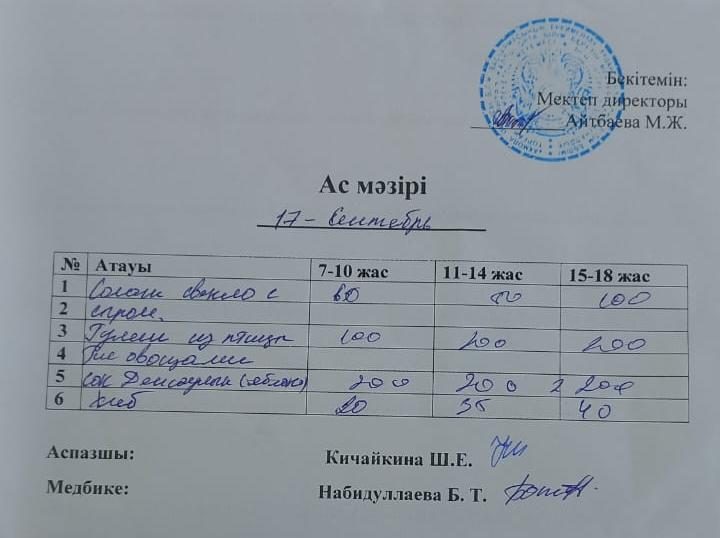 Бекітемін:
Мектеп директоры
Айтбаева М.Ж.
Ас мәзірі
17 - Сентебрь
№ Атауы 7-10 жас 11-14 жас 15-18 жас
1 Салат свекло с 60 100
2 сыром.
3 Гуляш из птицы 100 200 200
4 овощами
5 сок (яблоко) 200 200 200
6 хлеб 20 35 40
Аспазшы: Кичайкина Ш.Е.
Медбике: Набидуллаева Б. Т.